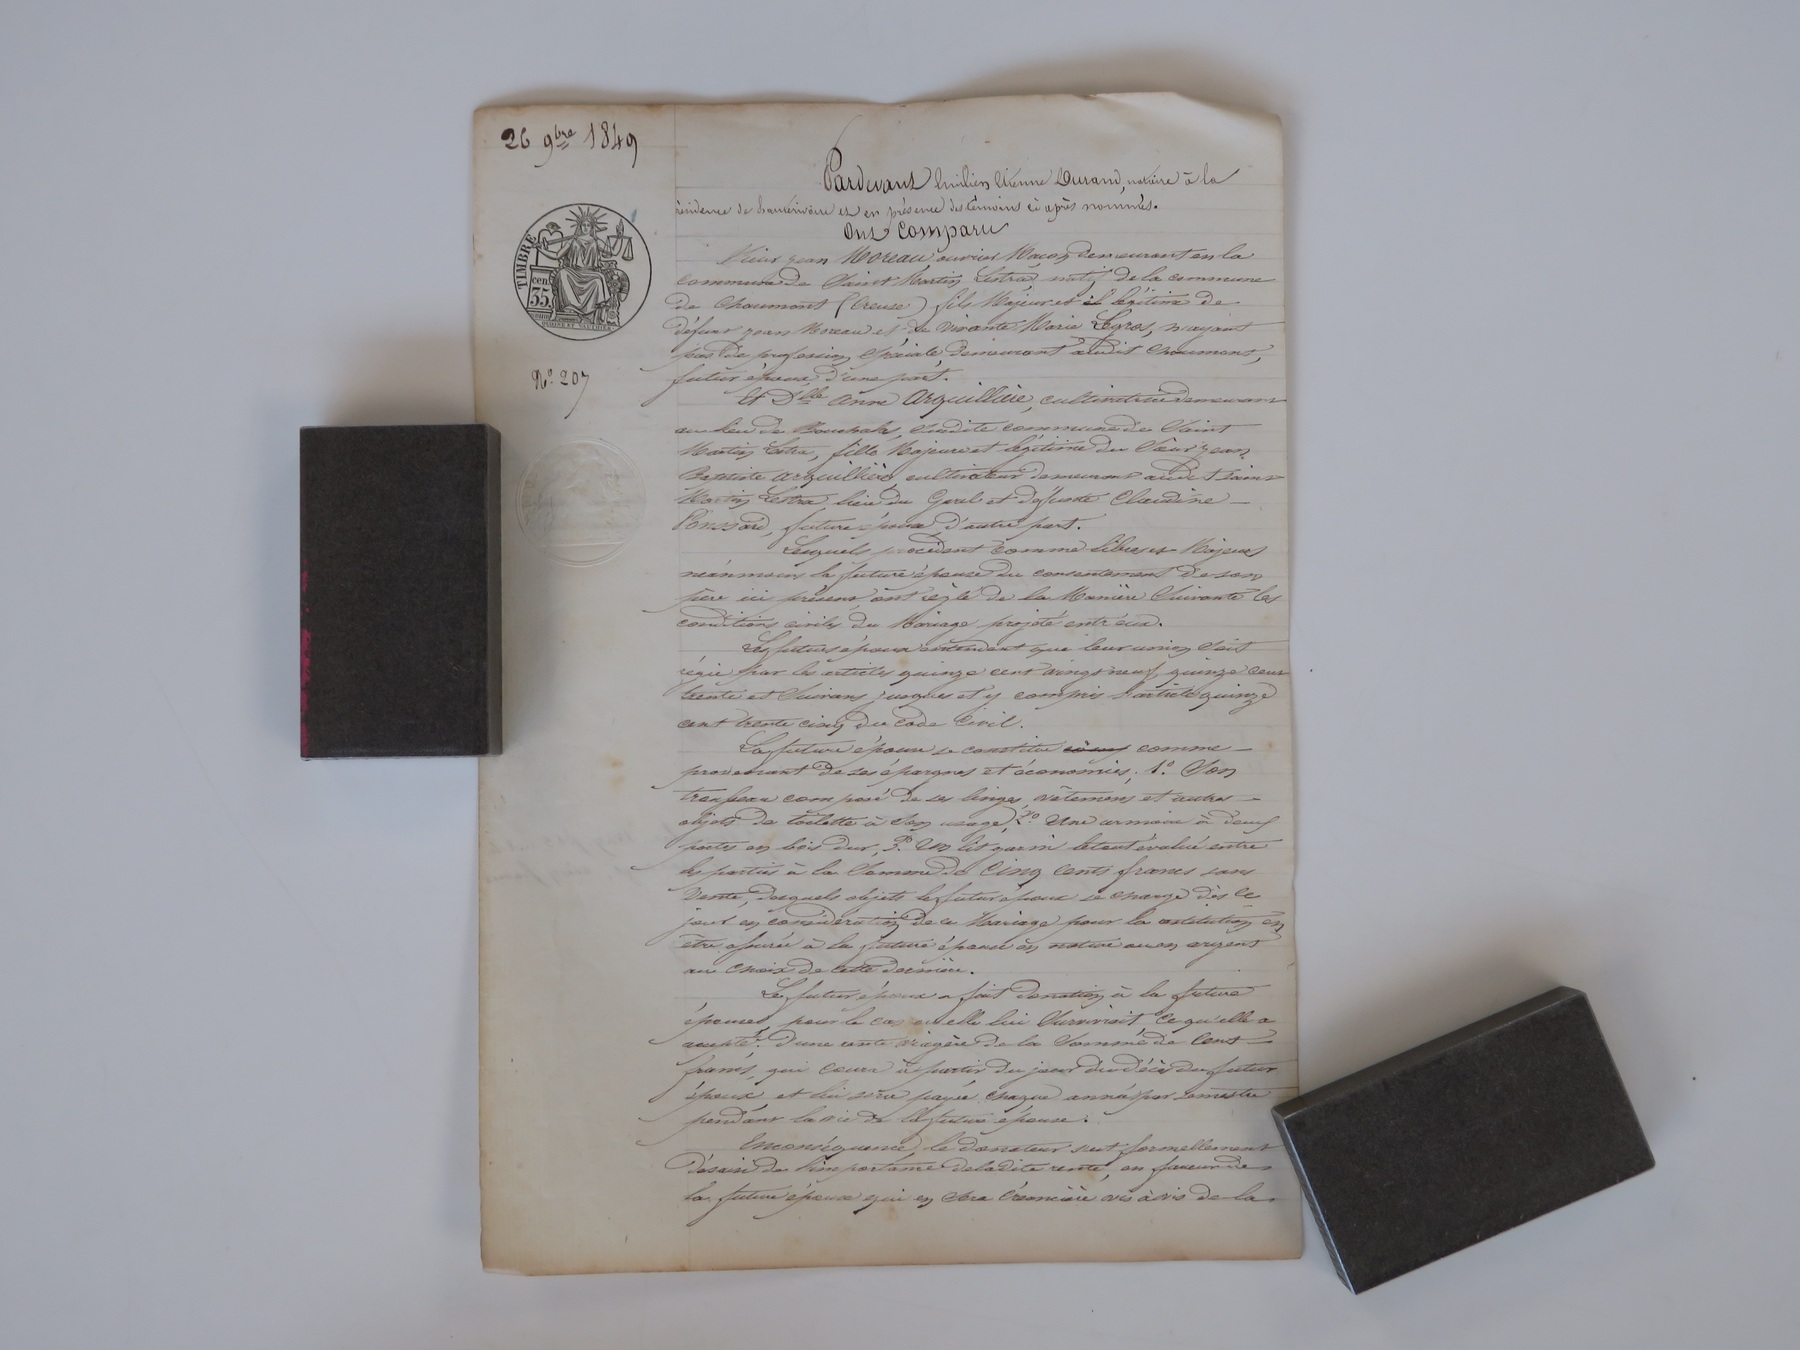 26 9bre 1849
Pardevant Etienne Durand, notaire à la
résidence de et en présence des témoins ci après nommés.
Ont Comparu
TIMBRE
cen.
35
Sieur jean Moreau ouvrier Maçon demeurant en la
commune de Saint Martin Lestra, natif de la commune
de Chaumont (Creuse) fils Majeur et légitime de
défunt jean Moreau et de vivante Marie Legros, n'ayant
pas de profession spéciale, demeurant audit Chaumont,
futur époux d'une part.
No 207
Et Dlle anne arquillière, cultivatrice demeurant
au lieu de susdite commune de Saint
Martin Lestra, fille Majeure et légitime du Sieur jean
Baptiste arquillière, cultivateur demeurant audit Saint
Martin Lestra lieu du et défunte Claudine
future épouse d'autre part.
Lesquels procédant comme libres et Majeurs
néanmoins la future épouse du consentement de son
père ici présent, ont réglé de la Manière Suivante les
conditions civiles du Mariage projété entr'eux.
Les futurs époux entendent que leur union soit
régie par les articles quinze cent vingt neuf, quinze cent
trente et Suivans jusques et y compris l'article quinze
cent trente cinq du code Civil.
La future épouse se constitue comme
provenant de ses épargnes et économies, 1o Son
trousseau composé de ses linges, vêtemens et autres
objets de toilette à Son usage, 2o Une armoire à deux
portes en bois dur, 3o Un lit garni le tout évalué entre
les parties à la Somme de Cinq cents francs sans
vente, desquels objets le futur époux se charge dès ce
jour en considération de ce Mariage pour la restitution en
être opérée à la future épouse en nature ou en argent
au choix de cette dernière.
Le futur époux a fait donation à la future
épouse, pour le cas où elle lui Survivrait ce qu'elle a
accepté, d'une rente viagère de la Somme de Cent
francs, qui courra à partir du jour du décès du futur
époux et lui sera payée chaque année par semestre
pendant la vie de la future épouse.
En conséquence, le donateur s'est formellement
désaisi de l'importance de ladite rente, en faveur de
la future épouse qui en sera Créancière vis à vis de la